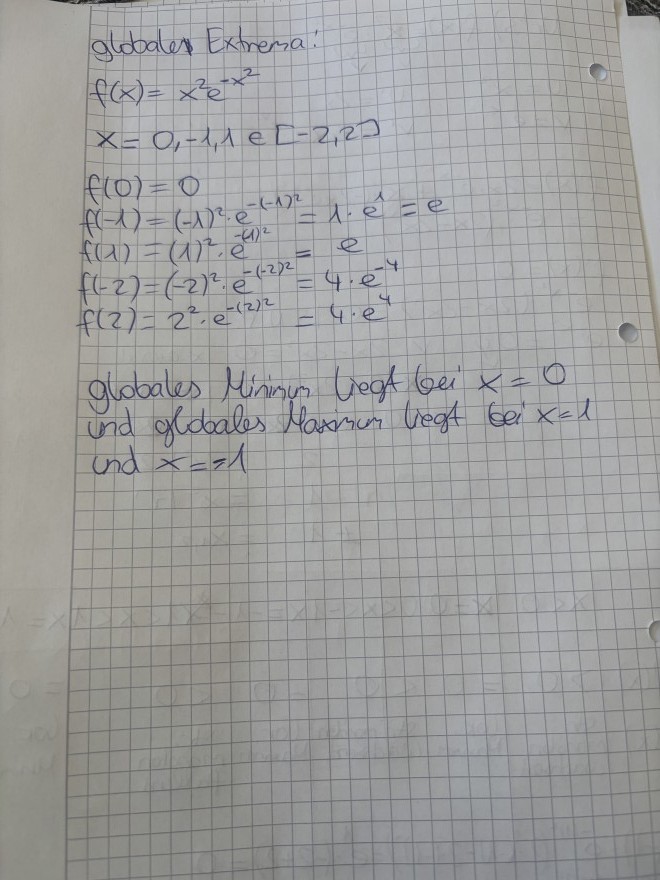 globales Extrema:
f(x) = x²e^-x²
x = 0,-1,1 e [-2,2]
f(0) = 0
f(-1) = (-1)²·e^-(-1)² = 1·e^1 = e
f(1) = (1)²·e^-(1)² = e
f(-2) = (-2)²·e^-(-2)² = 4·e^-4
f(2) = 2²·e^-(2)² = 4·e^4
globales Minimum liegt bei x = 0
und globales Maximum liegt bei x=1
und x = -1